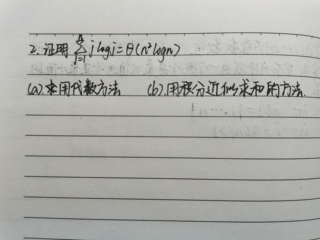 2. 证明 $\sum_{i=1}^{n} i \log i = \Theta(n^2 \log n)$
(a) 采用代数方法 (b) 用积分近似求和的方法